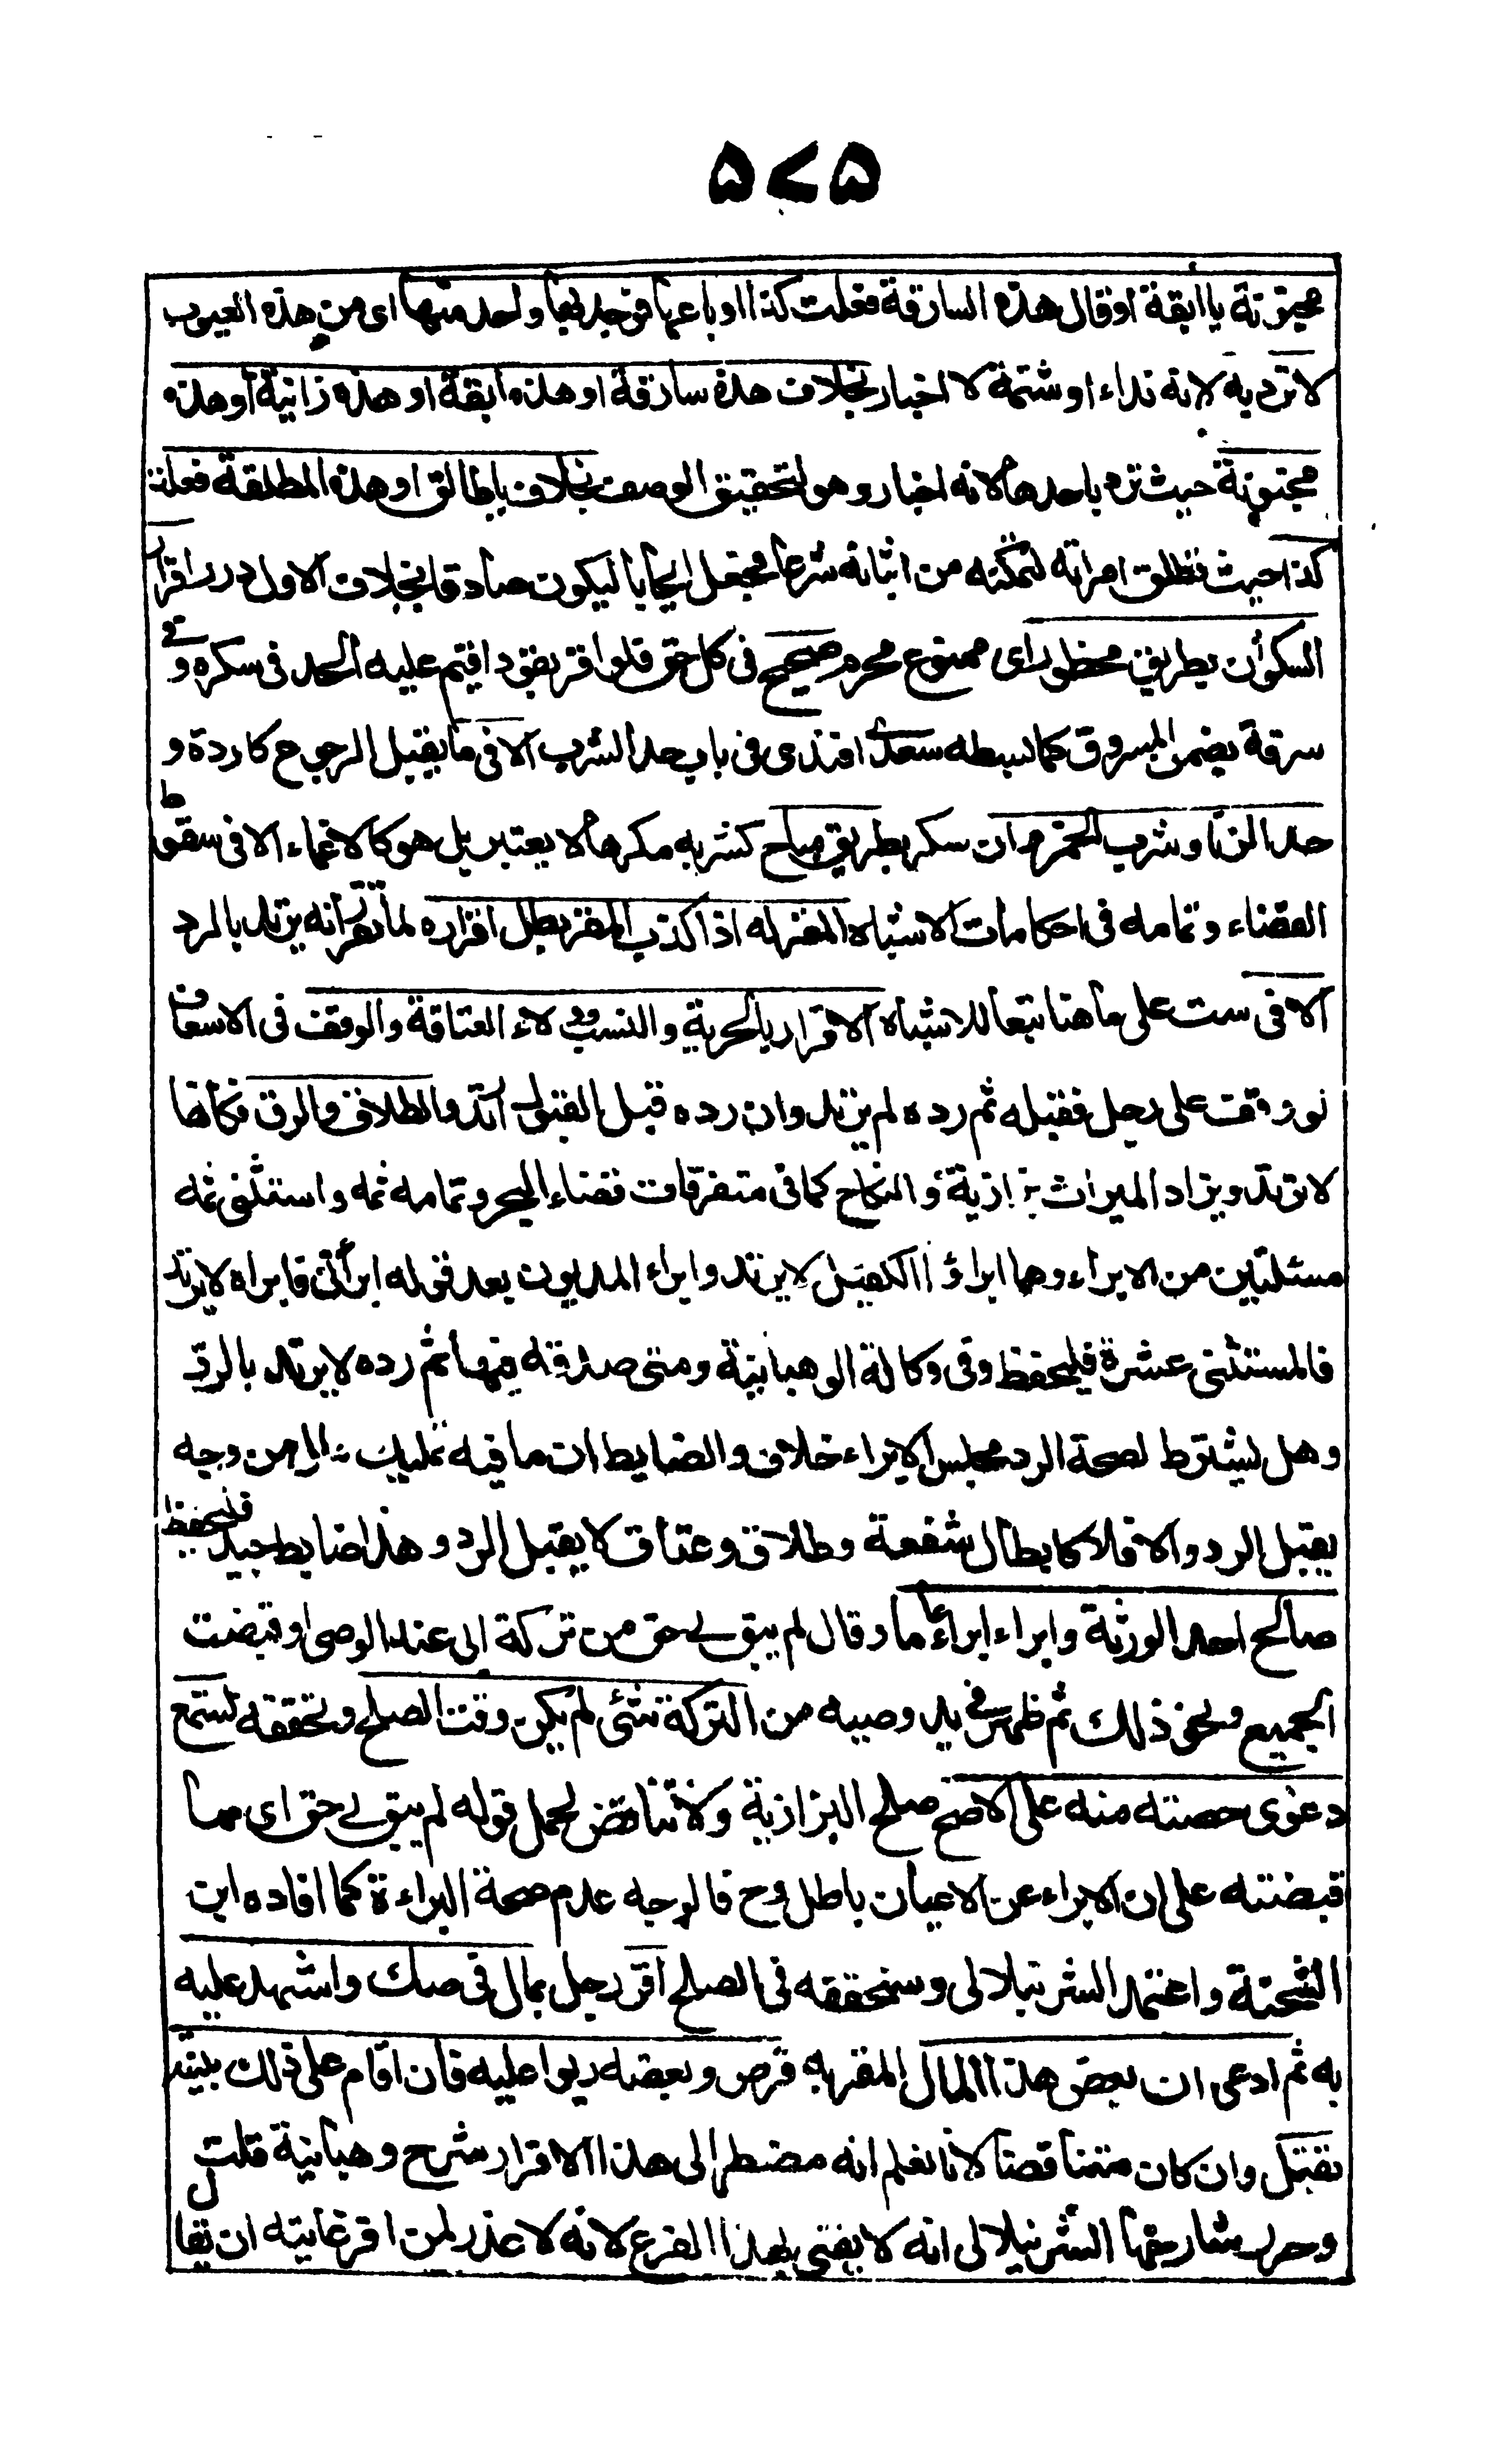 ۵۷۵
مجنونة يا ابقة او قال هذه السارقة فعلت كذا او باعها فوجد بها واحد منها اى من هذه العيوب
لا ترد به لانه نداء او شتمة لا اخبار بخلاف هذه سارقة او هذه ابقة او هذه زانية او هذه
مجنونة حيث ترد باحدها لانه اخبار وهو لتحقيق الوصف بخلاف يا طالق او هذه المطلقة فعلت
كذا حيث تطلق امراته لتمكنه من اثباته شرعا فجعل ايجابا ليكون صادقا بخلاف الاول درر اقرار
السكران بطريق محظور اى ممنوع محرم صحيح فى كل حق فلو اقر بقود اقيم عليه الحد فى سكره وفى
سرقة يضمن المسروق كما بسطه سعدى افندى فى باب حد الشرب الا فى ما يقبل الرجوع كا ردة و
حد الزنا و شرب الخمر وان سكر بطريق مباح كشربه مكرها لا يعتبر بل هو كالاغماء الا فى سقوط
القضاء وتمامه فى احكامات الاشباه المقر له اذا كذب المقر بطل اقراره لما تقرر انه يرتد بالرد
الا فى ست على ما هنا تبعا للاشباه الاقرار بالحرية والنسب و ولاء العتاقة والوقف فى الاسعاف
لو وقف على رجل فقبله ثم رده لم يرتد وان رده قبل القبول ارتد والطلاق والرق فكلها
لا ترتد ويزاد الميراث بزازية و النكاح كما فى متفرقات قضاء البحر وتمامه ثمه واستثنى ثمه
مسئلتين من الابراء وهما ابراؤ الكفيل لا يرتد وابراء المديون بعد قوله ابرأنى فابراه لا يرتد
فالمستثنى عشرة فليحفظ وفى وكالة الوهبانية ومتى صدقه فيها ثم رده لا يرتد بالرد
وهل يشترط لصحة الرد مجلس الابراء خلاف والضابط ان ما فيه تمليك مال من وجه
يقبل الرد والا فلا كابطال شفعة وطلاق وعتاق لا يقبل الرد وهذا ضابط جيد فليحفظ
صالح احد الورثة وابراء ابراء عاما وقال لم يبق لى حق من تركة ابى عند الوصى او قبضت
الجميع و نحو ذلك ثم ظهر فى يد وصيه من التركة شئى لم يكن وقت الصلح وتحققه تسمع
دعوى حصته منه على الاصح صلح البزازية ولا تناقض لحمل قوله لم يبق لى حق اى مما
قبضته على ان الابراء عن الاعيان باطل وح فالوجه عدم صحة البراءة كما افاده ابن
الشحنة واعتمد الشرنبلالى وسنحققه فى الصلح اقر رجل بمال فى صك واشهد عليه
به ثم ادعى ان بعض هذا المال المقر به قرض وبعضه ربوا عليه فان اقام على ذلك بينة
تقبل وان كان متناقضا لانا نعلم انه مضطر الى هذا الاقرار شرح وهبانية قلت
وحرر شارحها الشرنبلالى انه لا يفتى بهذا الفرع لانه لا عذر لمن اقر غايته ان يقال